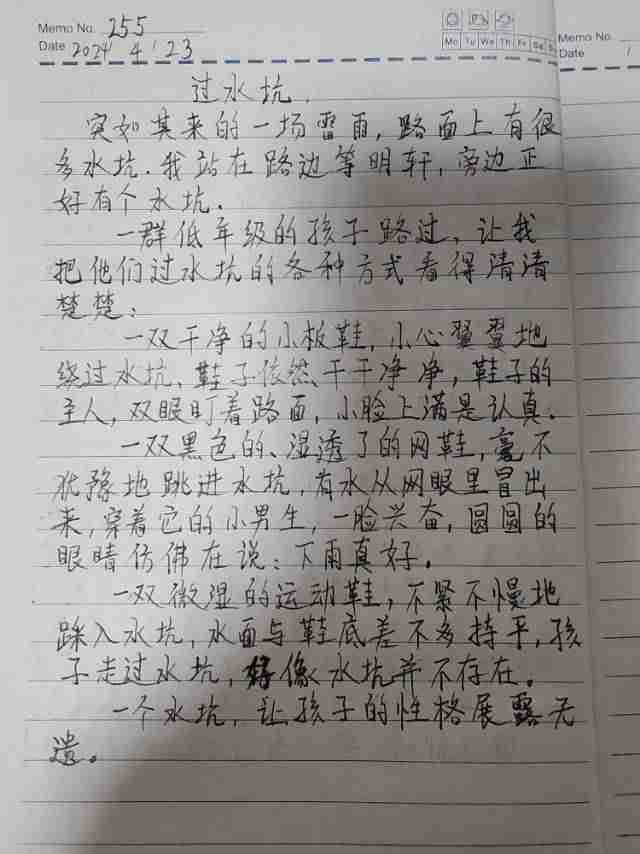 Memo No. 255
Date 2024 4 23
Mo Tu We Th Fr Sa
Memo No.
Date
过水坑.
突如其来的一场雷雨,路面上有很
多水坑.我站在路边等明轩,旁边正
好有个水坑.
一群低年级的孩子路过,让我
把他们过水坑的各种方式看得清清
楚楚:
一双干净的小板鞋,小心翼翼地
绕过水坑、鞋子依然干干净净,鞋子的
主人,双眼盯着路面,小脸上满是认真.
一双黑色的、湿透了的网鞋,毫不
犹豫地跳进水坑,有水从网眼里冒出
来,穿着它的小男生,一脸兴奋,圆圆的
眼睛仿佛在说:下雨真好.
一双微湿的运动鞋,不紧不慢地
踩入水坑,水面与鞋底差不多持平,孩
子走过水坑,好像水坑并不存在。
一个水坑,让孩子的性格展露无
遗。